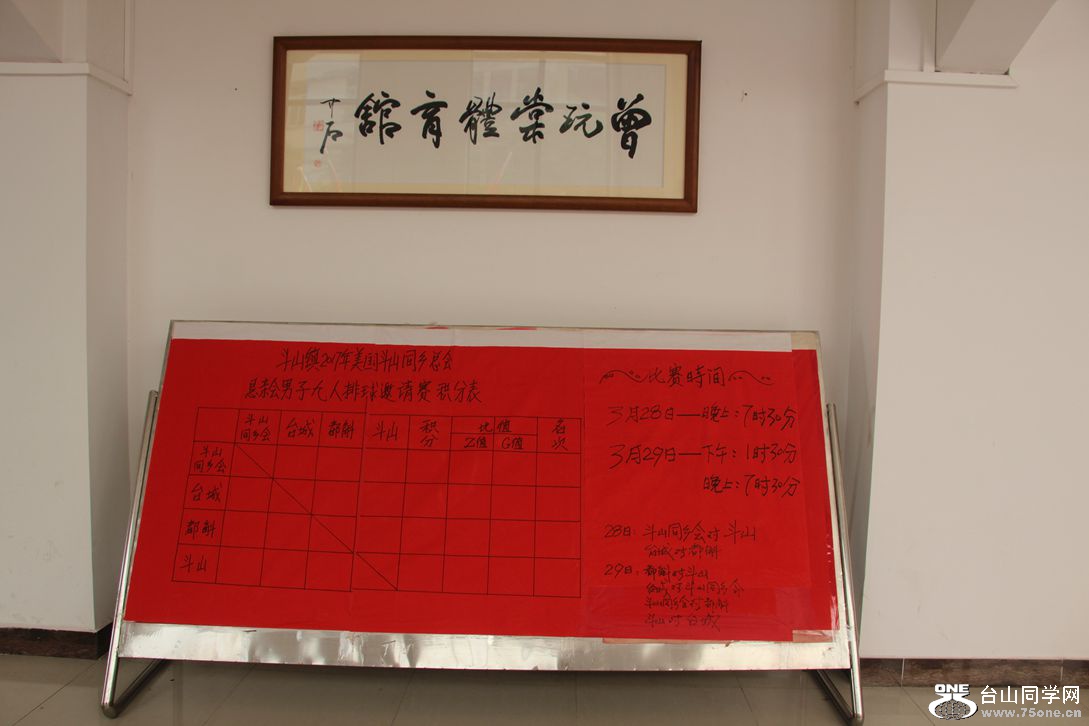 曾玩棠體育館
斗山镇2017年美国斗山同乡总会
恳亲会男子九人排球邀请赛积分表
斗山同乡会 台城 都斛 斗山 积分 比值 名次
Z值 G值
斗山同乡会
台城
都斛
斗山
比赛時间
3月28日——晚上:7时30分
3月29日——下午:1时30分
晚上:7时30分
28日:斗山同乡会对斗山
台城对都斛
29日:都斛对斗山
台城对斗山同乡会
斗山同乡会对都斛
斗山对台城
ONE 台山同学网
www.75one.cn